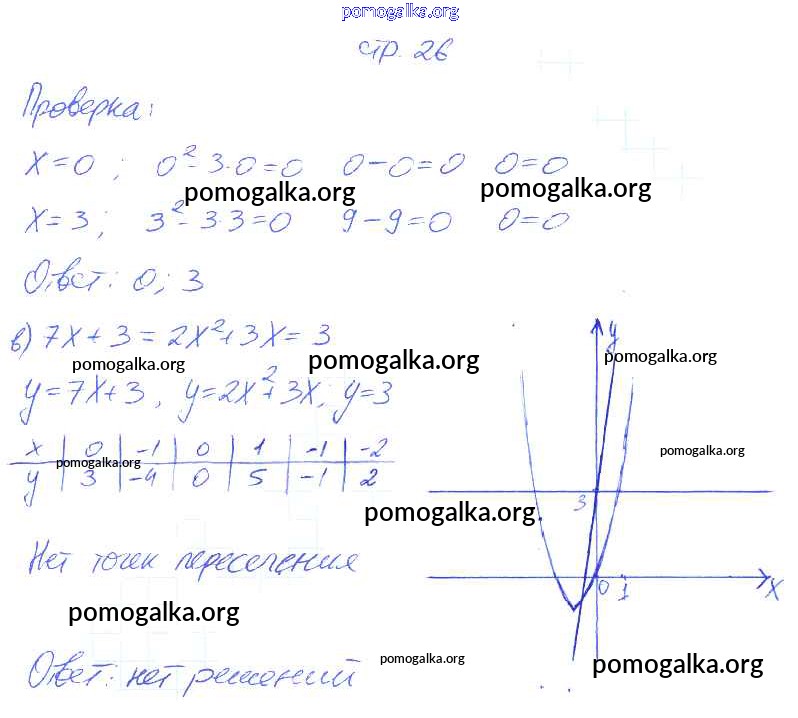 pomogalka.org
стр. 26
Проверка:
x=0; 0²-3·0=0 0-0=0 0=0
pomogalka.org pomogalka.org
x=3; 3²-3·3=0 9-9=0 0=0
Ответ: 0; 3
в) 7x+3=2x²+3x=3
pomogalka.org pomogalka.org pomogalka.org
y=7x+3, y=2x²+3x; y=3
x | 0 | -1 | 0 | 1 | -1 | -2
y | 3 | -4 | 0 | 5 | -1 | 2
pomogalka.org pomogalka.org
pomogalka.org
Нет точек пересечения
pomogalka.org
Ответ: нет решений
pomogalka.org pomogalka.org
y
3
0 1 x